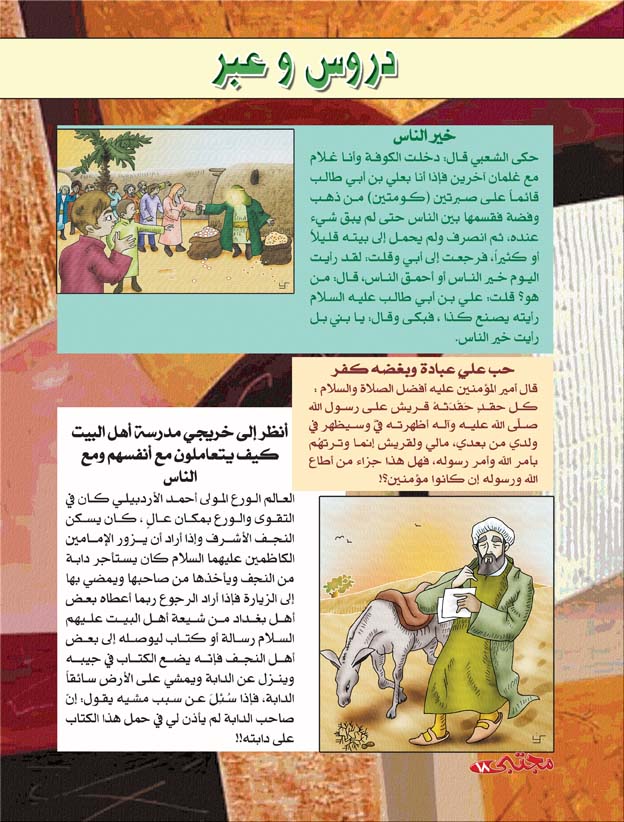 دروس و عبر
خير الناس
حكى الشعبي قال: دخلت الكوفة وأنا غلام
مع غلمان آخرين فإذا أنا بعلي بن أبي طالب
قائماً على صبرتين (كومتين) من ذهب
وفضة فقسمها بين الناس حتى لم يبق شيء
عنده، ثم انصرف ولم يحمل إلى بيته قليلاً
او كثيراً، فرجعت إلى أبي وقلت: لقد رايت
اليوم خير الناس أو أحمق الناس، قال: من
هو؟ قلت: علي بن أبي طالب عليه السلام
رايته يصنع كذا ، فبكى وقال: يا بني بل
رأيت خير الناس.
حب علي عبادة وبغضه كفر
قال أمير المؤمنين عليه أفضل الصلاة والسلام :
كل حقدٍ حَقَدَتْهُ قريش على رسول الله
صلّى الله عليه وآله أظهرته فيّ وسيظهر في
ولدي من بعدي، مالي ولقريش إنما وترتهُم
بأمر الله وأمر رسوله، فهل هذا جزاء من أطاع
الله ورسوله إن كانوا مؤمنين؟!
أنظر إلى خريجي مدرسة أهل البيت
كيف يتعاملون مع أنفسهم ومع
الناس
العالم الورع المولى أحمد الأردبيلي كان في
التقوى والورع بمكان عالٍ ، كان يسكن
النجف الأشرف وإذا أراد أن يزور الإمامين
الكاظمين عليهما السلام كان يستأجر دابة
من النجف ويأخذها من صاحبها ويمضي بها
إلى الزيارة فإذا أراد الرجوع ربما أعطاه بعض
أهل بغداد من شيعة أهل البيت عليهم
السلام رسالة أو كتاب ليوصله إلى بعض
أهل النجف فإنه يضع الكتاب في جيبه
وينزل عن الدابة ويمشي على الأرض سائقاً
الدابة، فإذا سُئلَ عن سبب مشيه يقول: إن
صاحب الدابة لم يأذن لي في حمل هذا الكتاب
على دابته!!
مجتبى ١٨